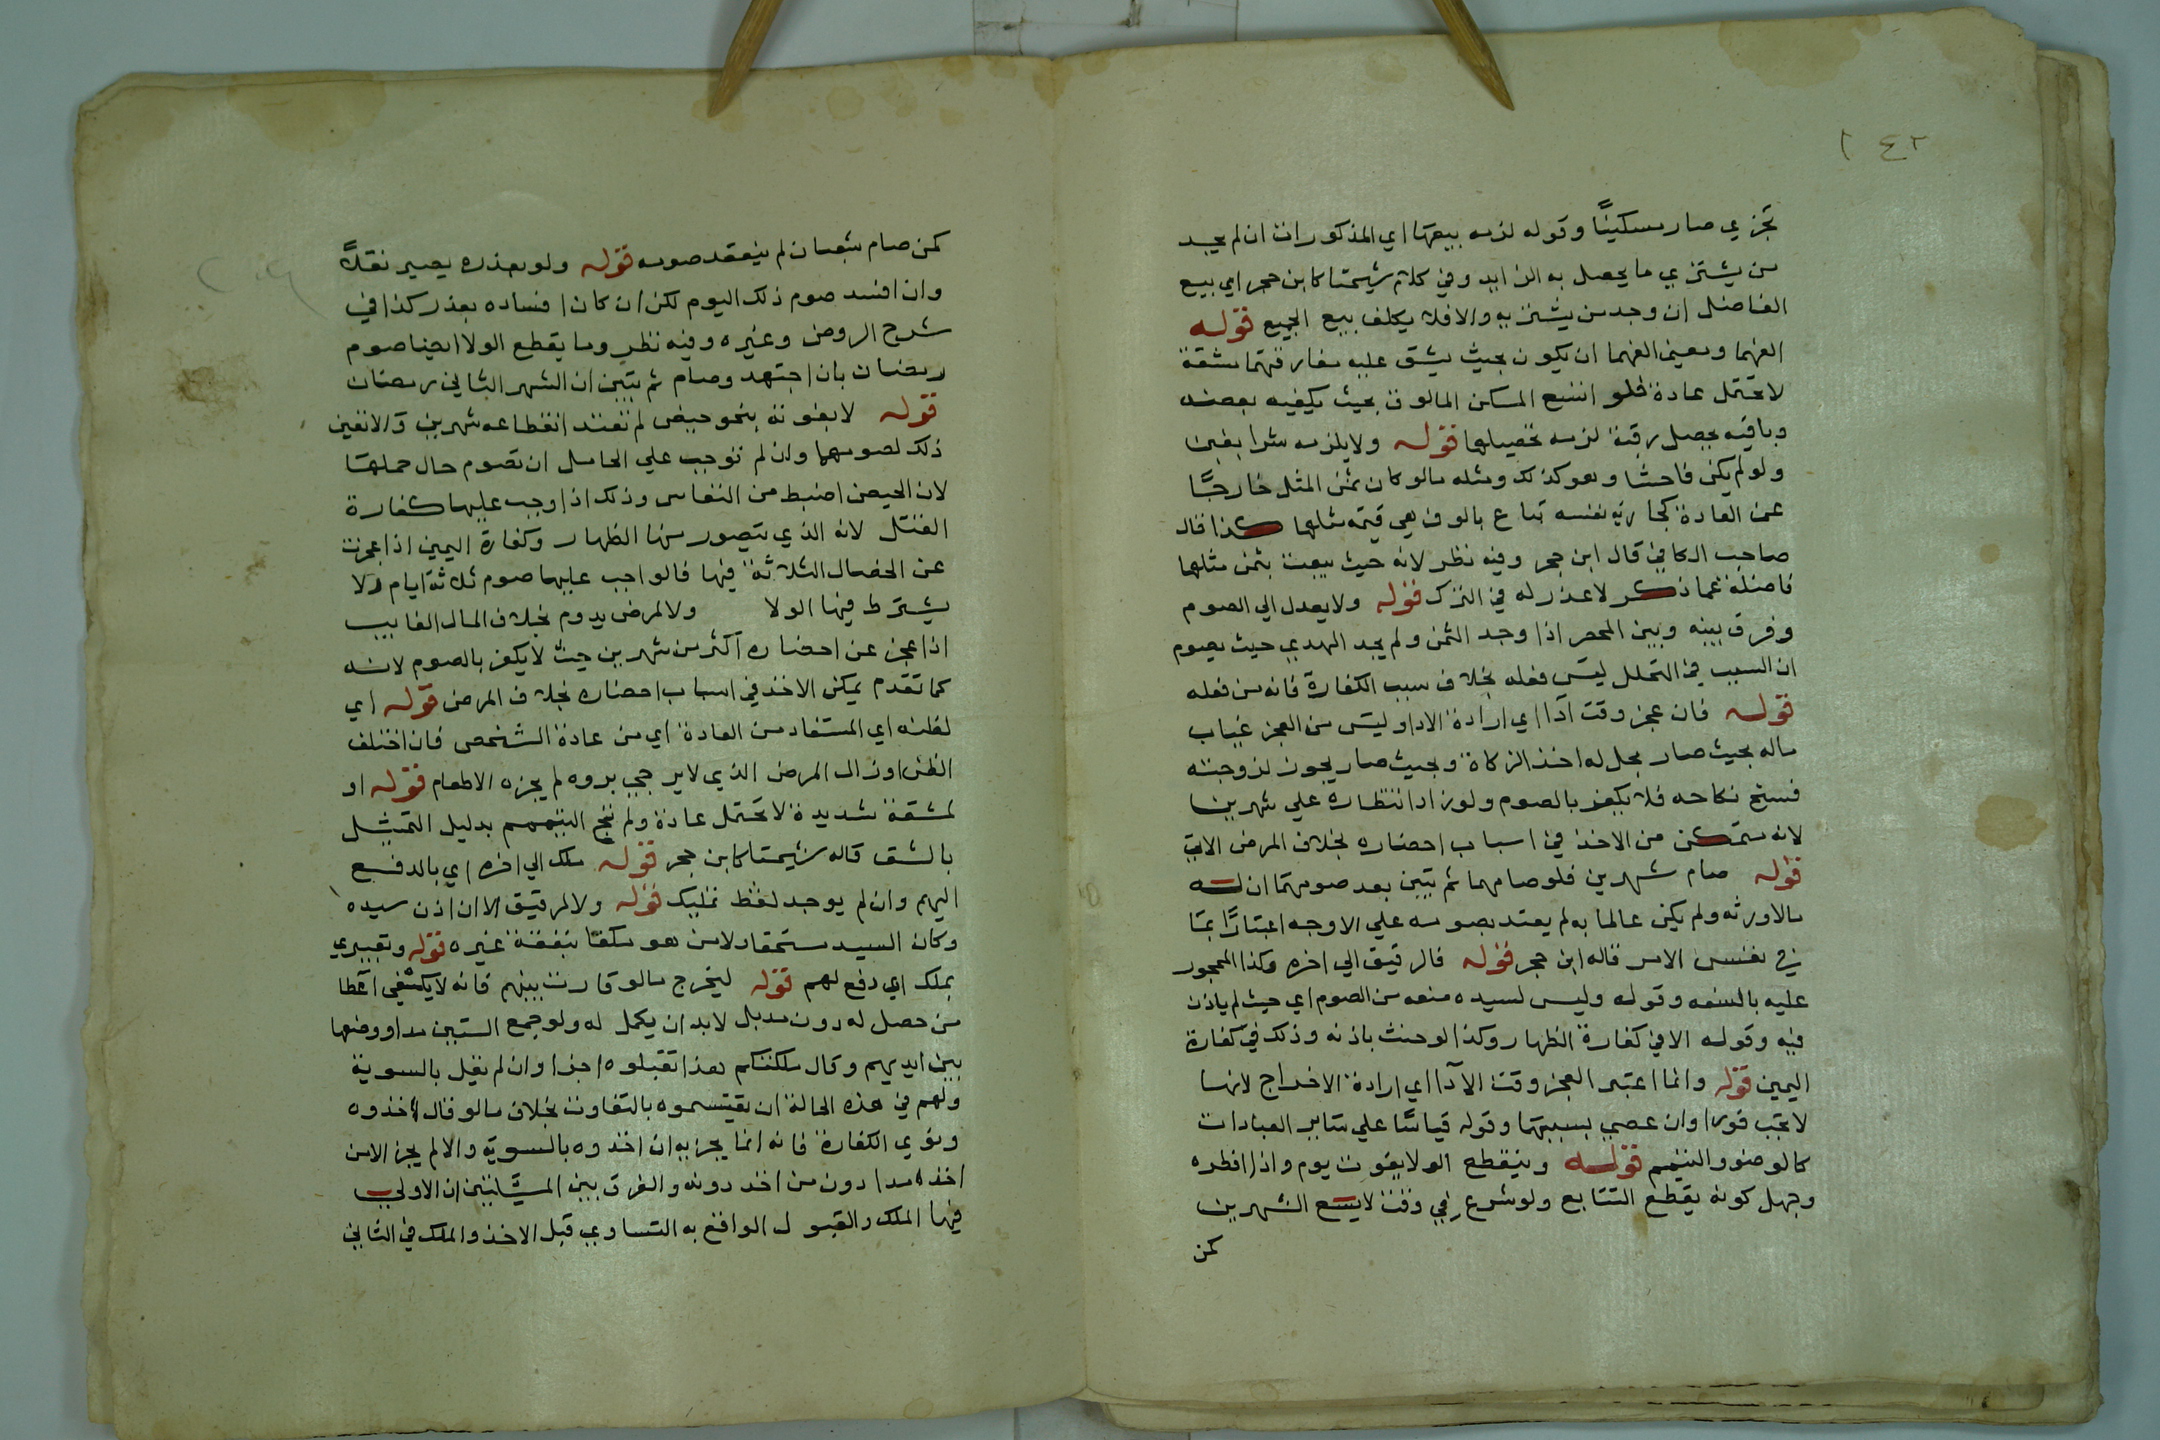 ١٤٢
تجزي صار مسكينًا وقوله لزمه بيعها اي المذكورات ان لم يجد
من يشتري ما يحصل به الزايد وفي كلام شيخنا كابن حجر اي بيع
الفاضل ان وجد من يشتريه والا فلا يكلف بيع الجميع قوله
الفهما ومعنى الفهما ان يكون بحيث يشق عليه مفارقتهما مشقة
لا تحتمل عادة فلو اتسع المسكن المالوف بحيث يكفيه بعضه
وباقيه يحصل رقبة لزمه تحصيلها قوله ولا يلزمه شرا بغبن
ولو لم يكن فاحشا وهو كذلك ومثله مالو كان ثمن المثل خارجًا
عن العادة كجارية نفيسه تباع بالوف هي قيمة مثلها كذا قال
صاحب الكافي قال ابن حجر وفيه نظر لانه حيث بيعت بثمن مثلها
فاضلة عما ذكر لا عذر له في الترك قوله ولا يعدل الي الصوم
وفرق بينه وبين المحصر اذا وجد الثمن ولم يجد الهدي حيث يصوم
ان السبب في التحلل ليس فعله بخلاف سبب الكفارة فانه من فعله
قوله فان عجز وقت ادا اي ارادة الادا وليس من العجز غياب
ماله بحيث صار يحل له اخذ الزكاة وبحيث صار يجوز لزوجته
فسخ نكاحه فلا يكفر بالصوم ولو زاد انتظاره علي شهرين
لانه متمكن من الاخذ في اسباب احضاره بخلاف المرض الاتي
قوله صام شهرين فلو صامهما ثم تبين بعد صومهما ان له
مالا ورثه ولم يكن عالما به لم يعتد بصومه علي الاوجه اعتبارًا بما
في نفس الامر قاله ابن حجر قوله فالرقيق الي اخره وكذا المحجور
عليه بالسفه وقوله وليس لسيده منعه من الصوم اي حيث لم ياذن
فيه وقوله الا في كفارة الظهار وكذا لو حنث باذنه وذلك في كفارة
اليمين قوله وانما اعتبر العجز وقت الادا اي ارادة الاخراج لانها
لا تجب فورا وان عصي بسببها وقوله قياسًا علي ساير العبادات
كالوضو والتيمم قوله وينقطع الولا بفوت يوم واذا افطره
وجهل كونه يقطع التتابع ولو شرع في وقت لا يسع الشهرين
كمن
كمن صام شعبان لم ينعقد صومه قوله ولو بعذره يصير نفلًا
وان افسد صوم ذلك اليوم لكن ان كان افساده بعذر كذا في
شرح الروض وغيره وفيه نظر ومما يقطع الولا ايضا صوم
رمضان بان اجتهد وصام ثم تبين ان الشهر الثاني رمضان
قوله لا بفوته بنحو حيض لم تعتد انقطاعه شهرين ولا نفين
ذلك لصومهما وان لم نوجب علي الحامل ان تصوم حال حملها
لان الحيض اضبط من النفاس وذلك اذا وجب عليها كفارة
القتل لانه الذي يتصور منها الظهار وكفارة اليمين اذا عجزت
عن الخصال الثلاثة فيها فالواجب عليها صوم ثلاثة ايام ولا
يشترط فيها الولا ولا لمرض يدوم بخلاف المال الغايب
اذا عجز عن احضاره اكثر من شهرين حيث لا يكفر بالصوم لانه
كما تقدم يمكن الاخذ في اسباب احضاره بخلاف المرض قوله اي
لظنه اي المستفاد من العادة اي من عادة الشخص فان اختلف
الظن او زال المرض الذي لا يرجي بروه لم يجزه الاطعام قوله او
لمشقة شديدة لا تحتمل عادة ولم تبح التيمم بدليل التمثيل
بالشق قاله شيخنا كابن حجر قوله ملك الي اخره اي بالدفع
اليهم وان لم يوجد لفظ تمليك قوله ولا لرقيق الا ان اذن سيده
وكان السيد مستحقا ولا من هو مكفا بنفقة غيره قوله وتعبيري
بملك اي دفع لهم قوله ليخرج مالو فاوت بينهم فانه لا يكفي اعطا
من حصل له دون مد بل لا بد ان يكمل له ولو جمع الستين مدا ووضعها
بين ايديهم وقال ملكتكم هذا تقبلوه اجزا وان لم نقل بالسوية
ولهم في هذه الحالة ان يقتسموه بالتفاوت بخلاف مالو قال خذوه
ونوي الكفارة فانه انما يجزيه ان اخذوه بالسوية والا لم يجز الا من
اخذ مدا دون من اخذ دونه والفرق بين المسئلتين ان الاولي
فيها الملك والقبول الواقع به التساوي قبل الاخذ والملك في الثاني